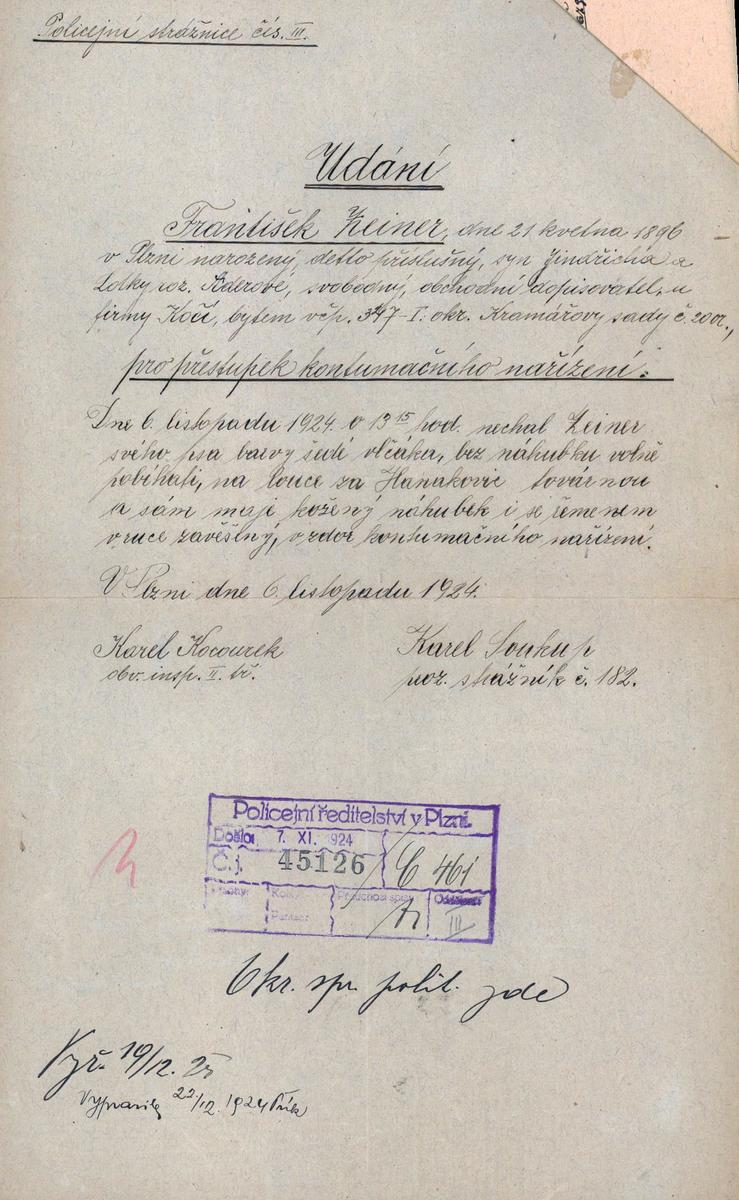 Policejní strážnice čís. III.
Udání
František Zeiner, dne 21 května 1896
v Plzni narozený, detto příslušný, syn Jindřicha a
Lotky roz. Aderové, svobodný, obchodní dopisovatel, u
firmy Kočí, bytem v čp. 347-I. okr. Kramářovy sady č. 20 or.,
pro přestupek kontumačního nařízení:
Dne 6. listopadu 1924 o 13 15 hod. nechal Zeiner
svého psa barvy šedí vlčáka, bez náhubku volně
pobíhati, na louce za Hanakovic továrnou
a sám maje kožený náhubek i se řemenem
v ruce zavěšený, vzdor kontumačního nařízení.
V Plzni dne 6. listopadu 1924.
Karel Kocourek
obv. insp. II. tř.
Karel Soukup
poz. strážník č. 182.
Policejní ředitelství v Plzni.
Došlo: 7. XI. 1924
Č.j. 45126
C 461
Přílohy: Kolky: Předchozí spisy Oddělení
III
Okr. spr. polit. zde
Vyř. 19/12.
Vypravila 22/12 1924